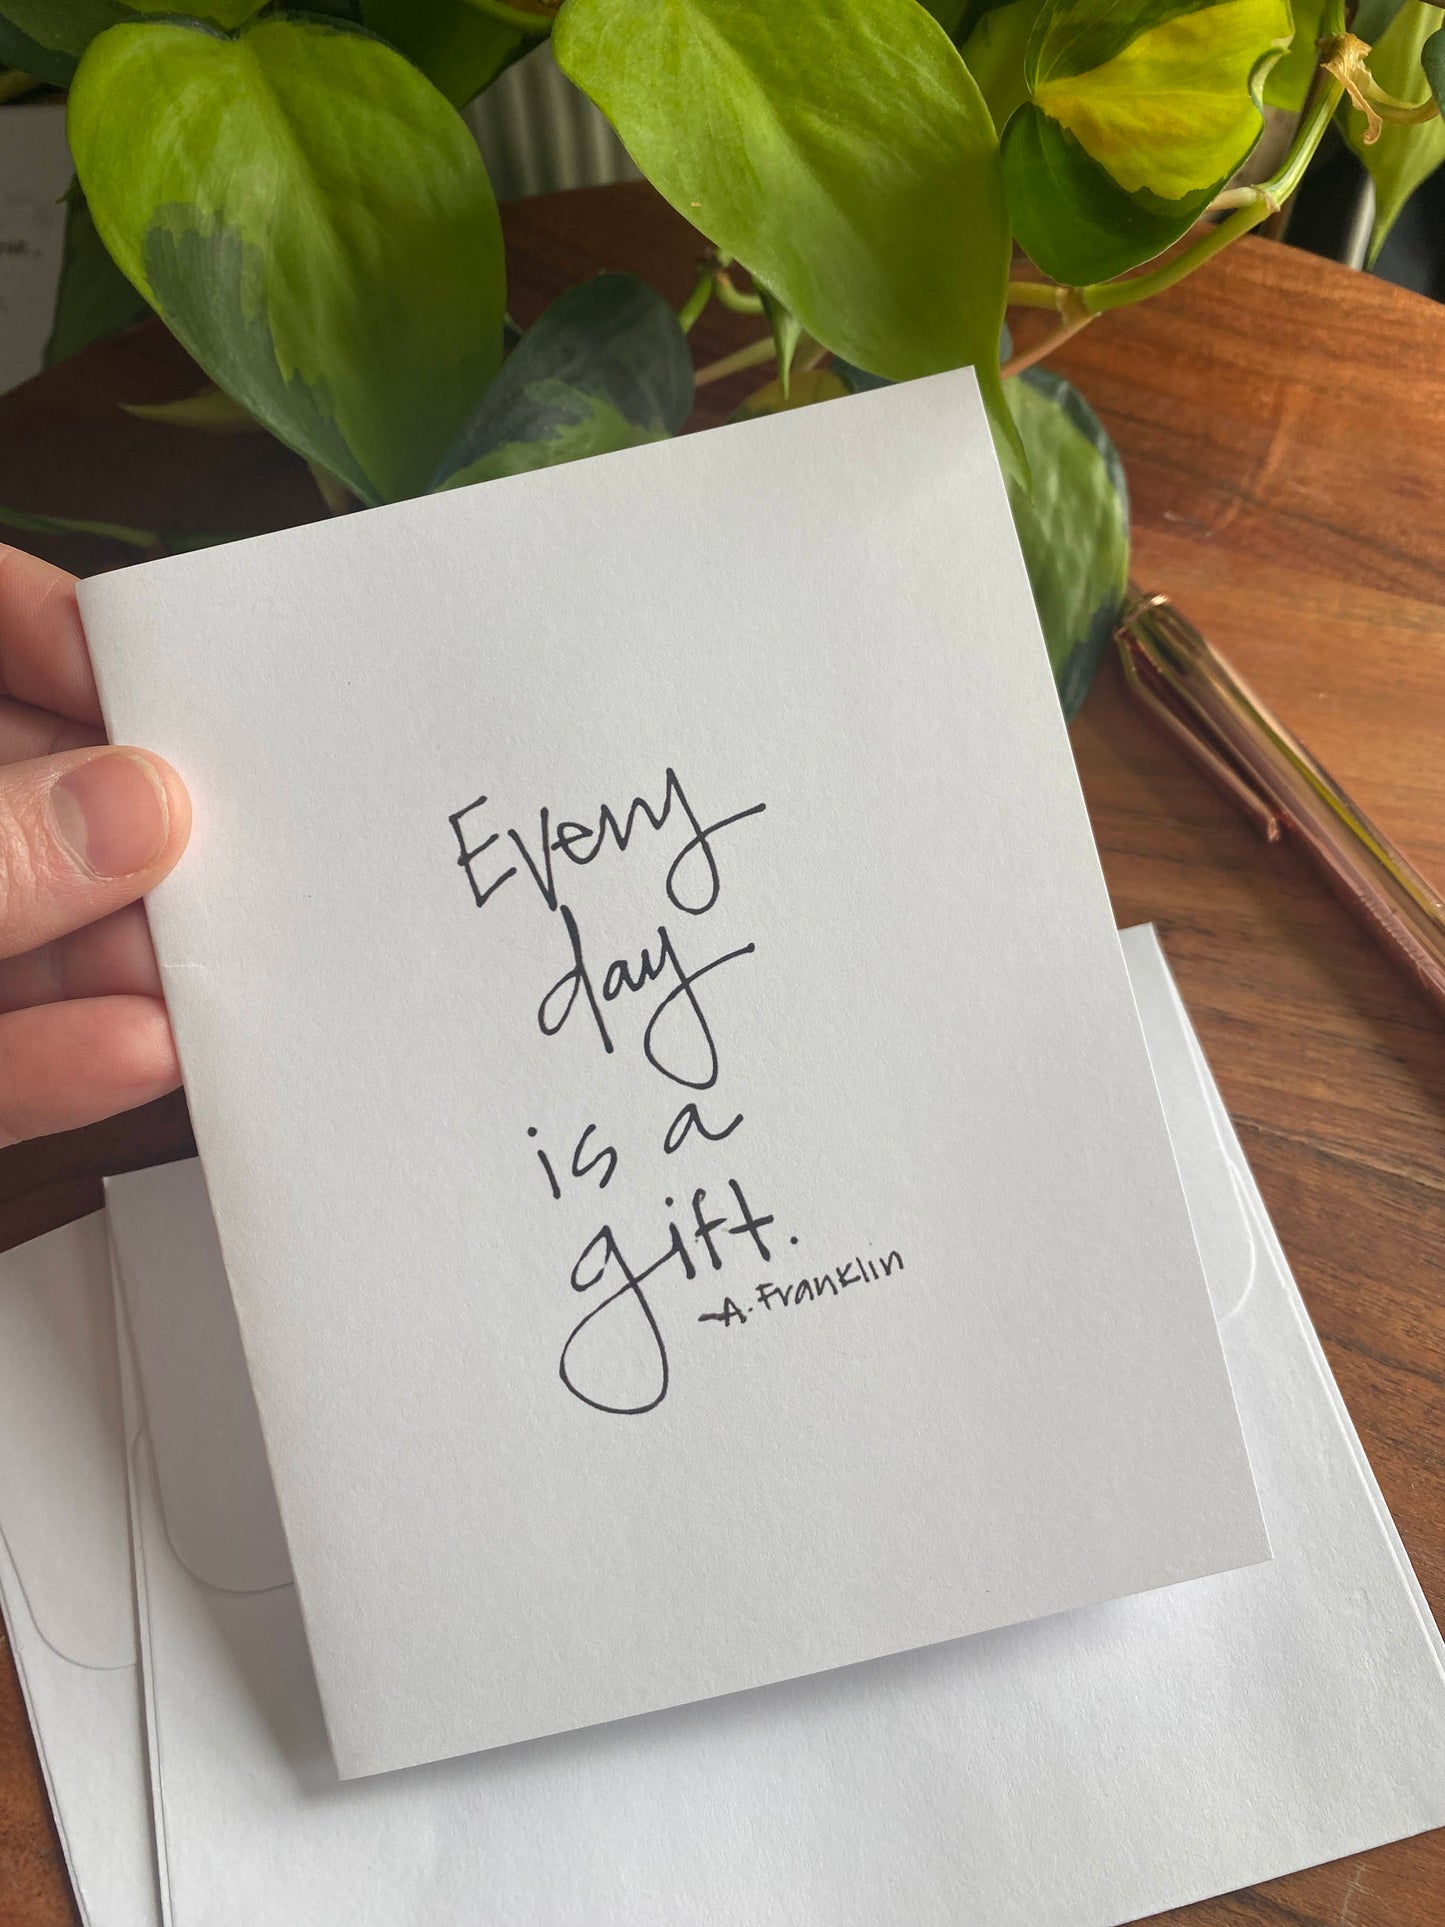 Every
day
is a
gift.
-A. Franklin